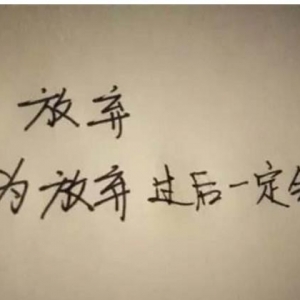 放弃
为放弃过后一定会